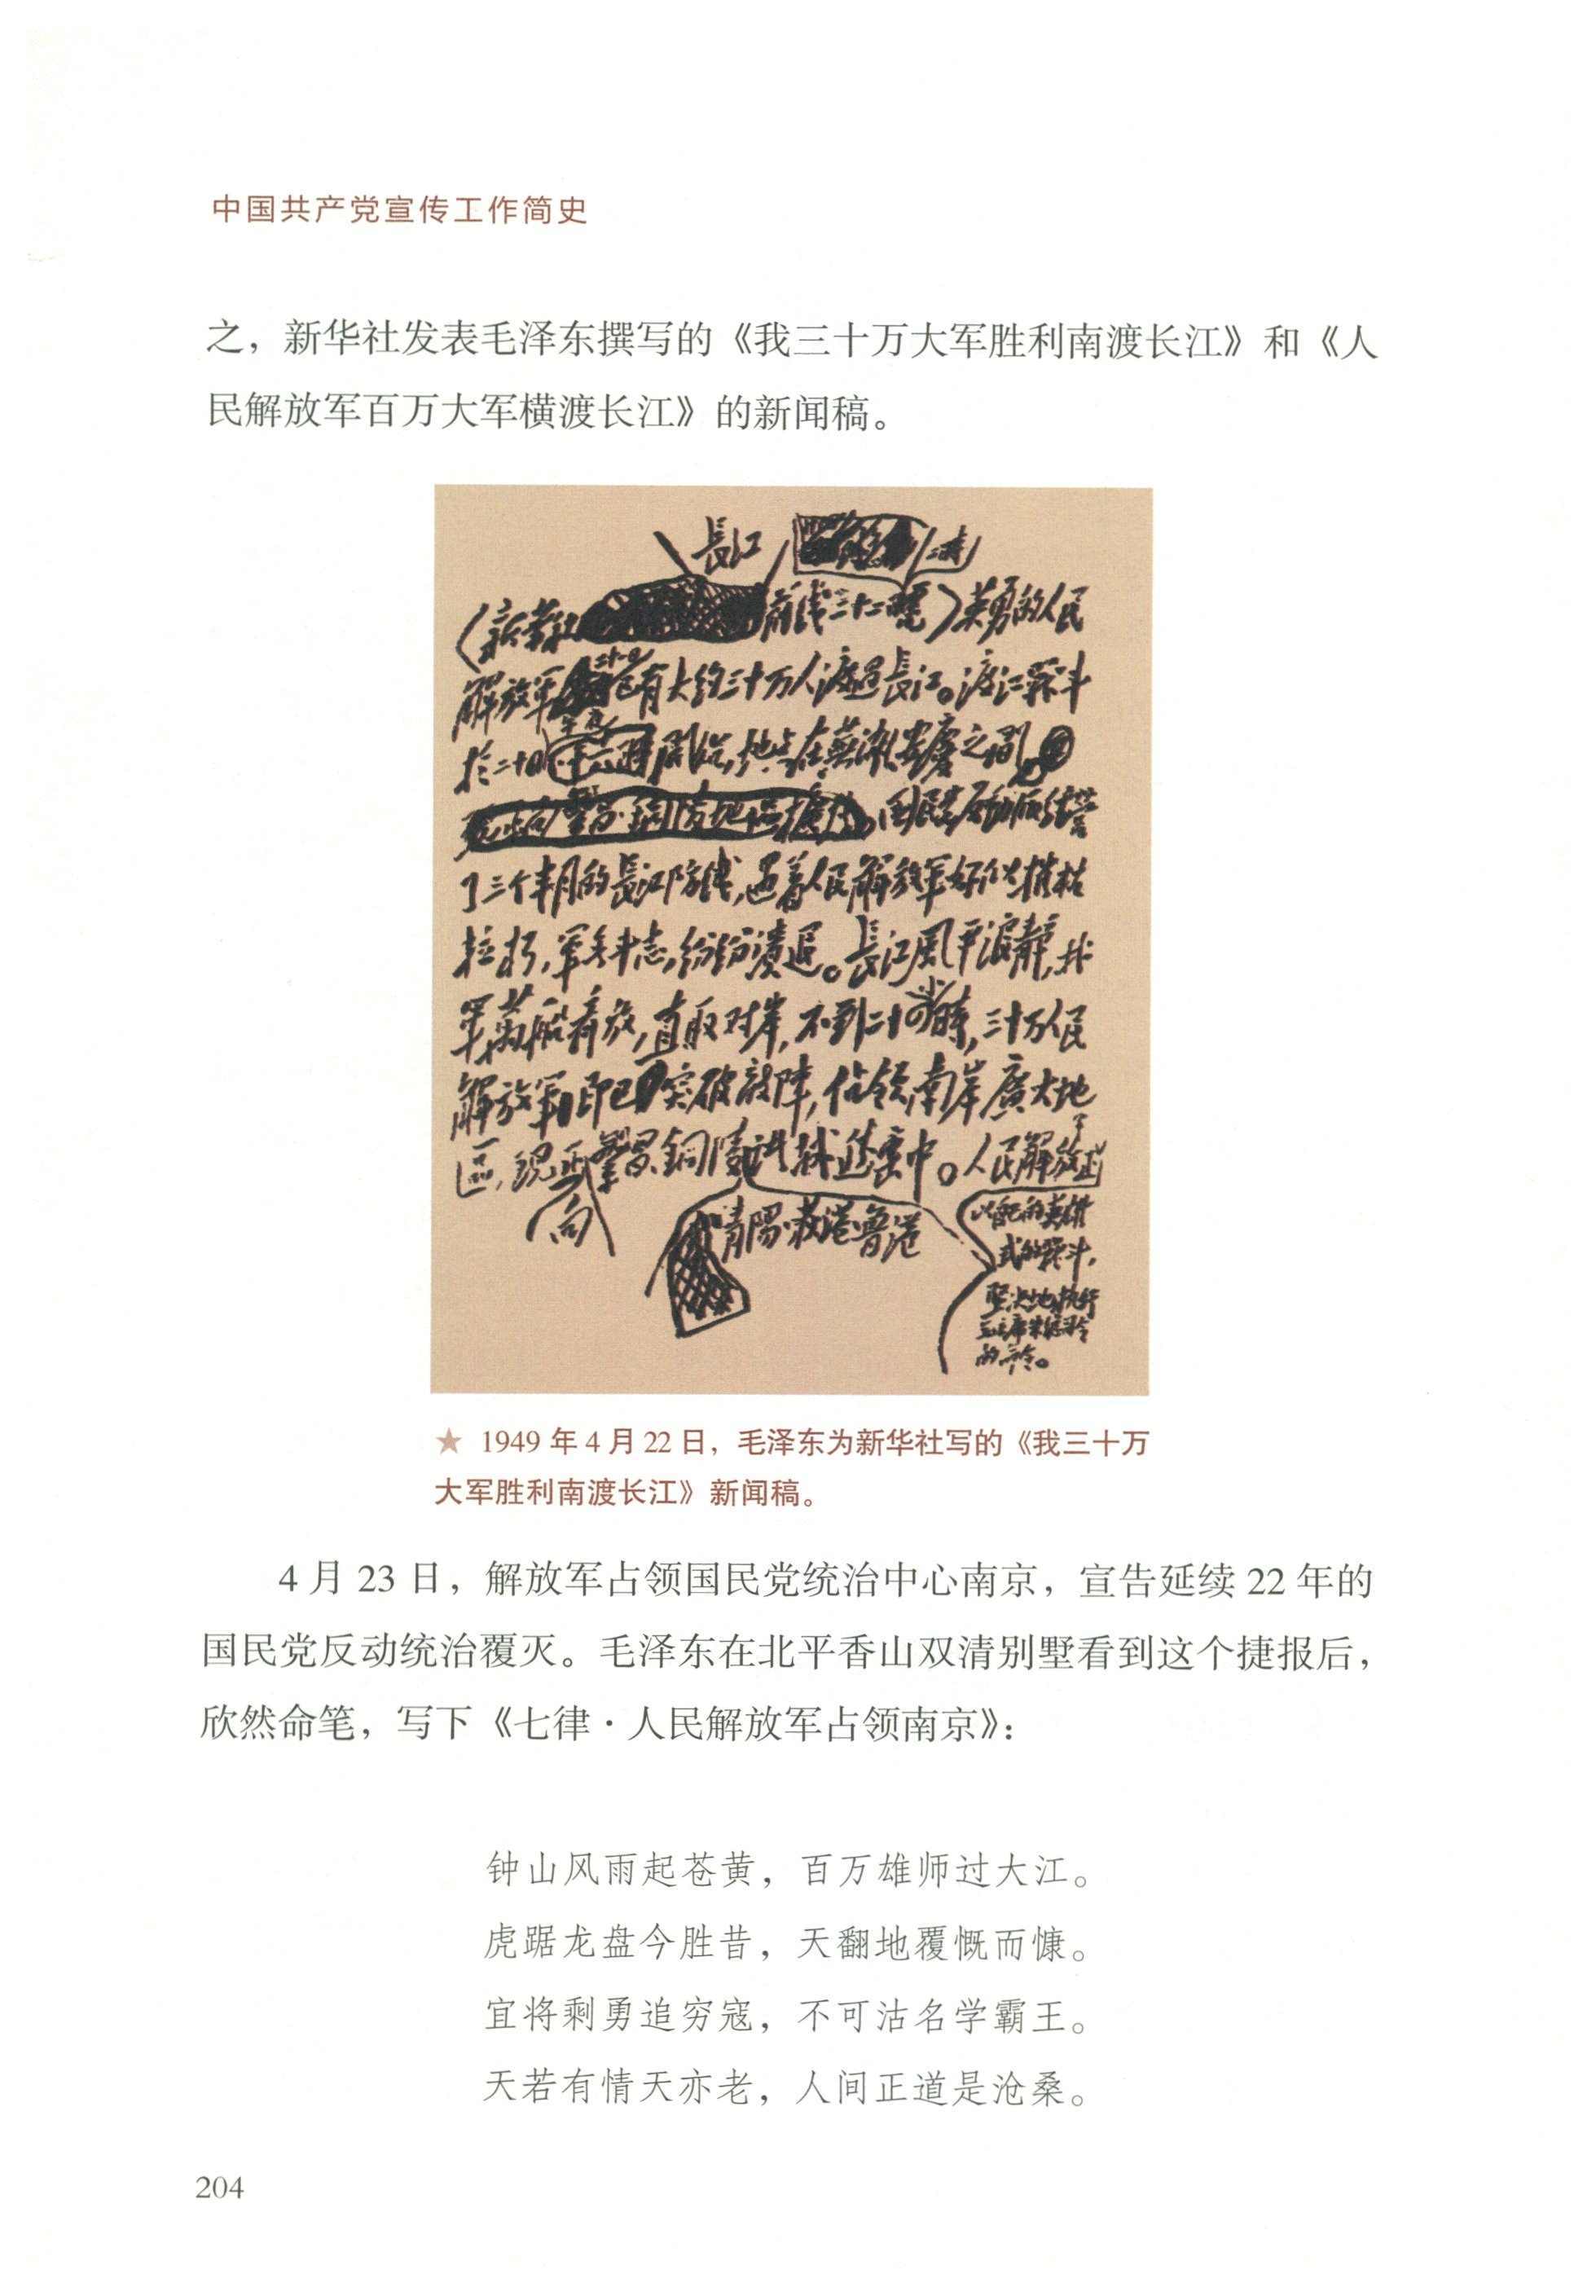 中国共产党宣传工作简史
之，新华社发表毛泽东撰写的《我三十万大军胜利南渡长江》和《人
民解放军百万大军横渡长江》的新闻稿。
長江
二時
（新華社 前线二十二日 ）英勇的人民
解放军 二十一日 已有大约三十万人渡過長江。渡江戰斗
於二十日 午夜 開始，地点在蕪湖、安慶之間
国民党反動派经营
了三个半月的長江防线，遇着人民解放军好似摧枯
拉朽，軍無斗志，纷纷潰退。長江風平浪静，我
軍萬船齊放，直取对岸，不到二十四小時，三十万人民
解放軍即已突破敵陣，佔领南岸廣大地
區，现正 向 繁昌、銅陵 青陽、荻港、魯港 諸城進擊中。人民解放军正
以自己的英雄
式的戰斗，
堅决地执行
毛主席朱總司令
的命令。
★ 1949 年 4 月 22 日，毛泽东为新华社写的《我三十万
大军胜利南渡长江》新闻稿。
4 月 23 日，解放军占领国民党统治中心南京，宣告延续 22 年的
国民党反动统治覆灭。毛泽东在北平香山双清别墅看到这个捷报后，
欣然命笔，写下《七律·人民解放军占领南京》：
钟山风雨起苍黄，百万雄师过大江。
虎踞龙盘今胜昔，天翻地覆慨而慷。
宜将剩勇追穷寇，不可沽名学霸王。
天若有情天亦老，人间正道是沧桑。
204